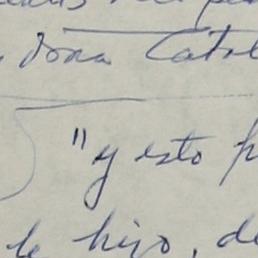 dona Catal
"y esto p
le hizo, de